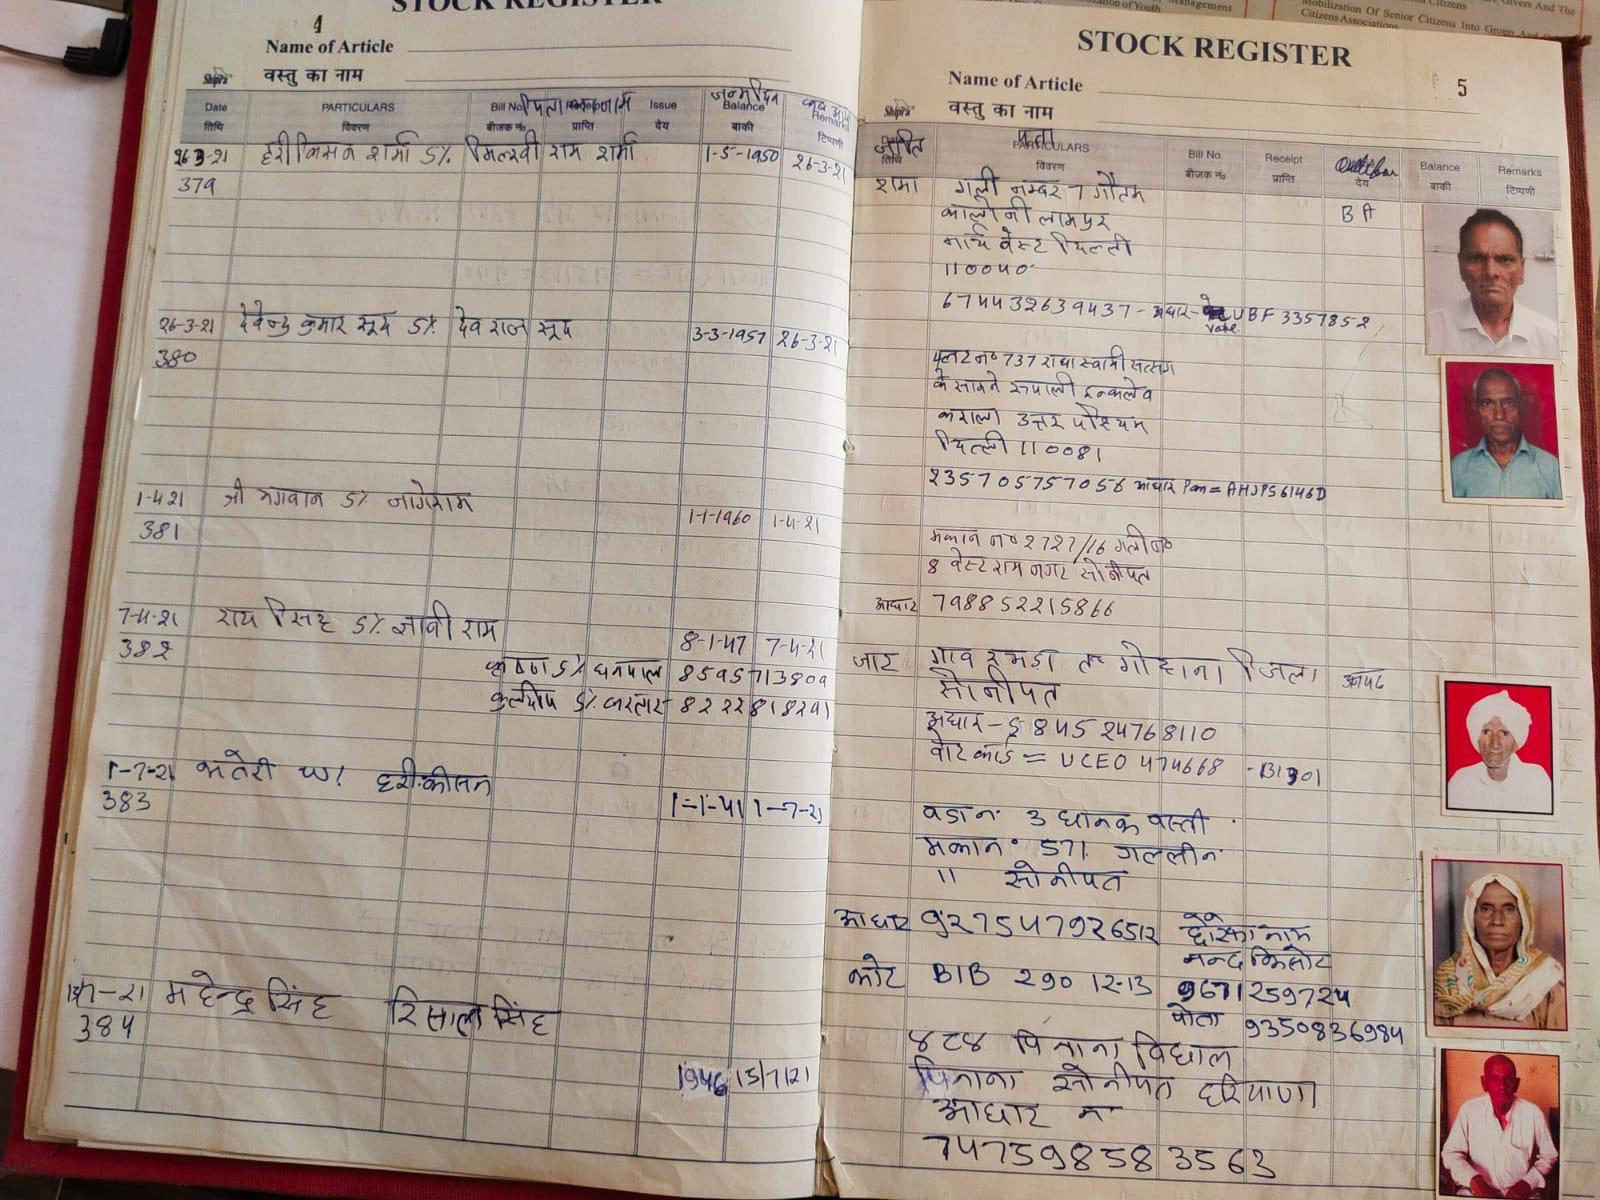 STOCK REGISTER
4
Name of Article
वस्तु का नाम
Shipra
Date PARTICULARS Bill No. Issue Balance Remarks
तिथि विवरण बीजक नं० प्राप्ति देय बाकी टिप्पणी
जन्म दिन
26-3-21 हरी किसन शर्मा S/. राम शर्मा 1-5-1950 26-3-21
379
26-3-21 देवेन्द्र कुमार सूद S/. देव राज सूद 3-3-1957 26-3-21
380
1-4-21 श्री भगवान S/. जागेराम 1-1-1960 1-4-21
381
7-4-21 राय सिंह S/. ज्ञानी राम 8-1-47 7-4-21
382
कृष्ण S/. धनपाल 8595713809
कुलदीप S/. करतार 8222818291
1-7-21 भतेरी हरी कीसन
383 1-1-41 1-7-21
महेन्द्र सिंह रिसाल सिंह
384
1946 15/7/21
Mobilization Of Senior Citizens Into Group And
Citizens Associations
STOCK REGISTER
Name of Article 5
Shipra वस्तु का नाम
जाति पता
PARTICULARS Bill No. Receipt Balance Remarks
तिथि विवरण बीजक नं० प्राप्ति देय बाकी टिप्पणी
शर्मा गली नम्बर 7 गौतम
कालोनी लामपुर BA
नार्थ वेस्ट दिल्ली
110040
674432639437 - आधार - UBF 3357852
vote
प्लाट न० 737 राधा स्वामी सत्संग
के सामने रूपाली इन्कलेव
कराला उत्तर पश्चिम
दिल्ली 110081
235705757056 आधार Pan = AHJPS6146D
मकान न० 2727/16 गली न०
8 वेस्ट राम नगर सोनीपत
आधार 798852215866
जाट गाव त० गोहाना जिला अनपढ
सोनीपत
आधार - 84524768110
वोट कार्ड = UCEO 474668
3 धानक बस्ती
मकान 571 गल्ली न
11 सोनीपत
आधार 927547926512 छोरे का नाम
नन्द किसोर
BIB 290 12-13 9671259724
पोता 9350836984
४८४ पिनाना विद्याल
पिनाना सोनीपत हरियाणा
आधार न
747598583563